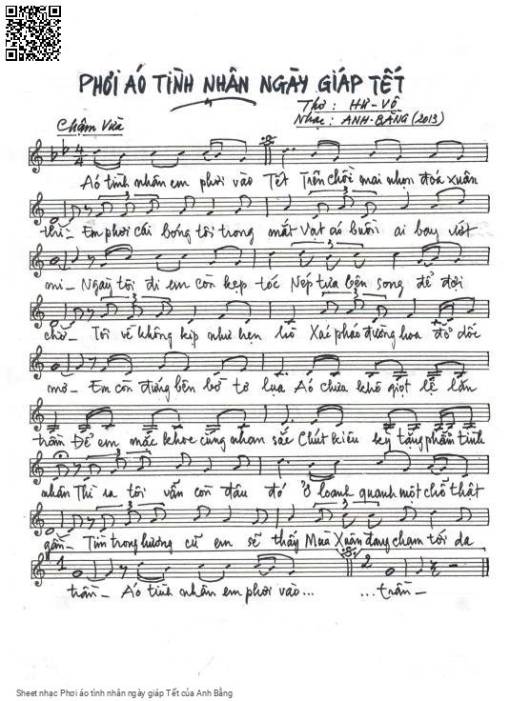 PHƠI ÁO TÌNH NHÂN NGÀY GIÁP TẾT
Thơ : HƯ-VÔ
Nhạc : ANH-BẰNG (2013)
Chậm Vừa
4
4
Áo tình nhân em phơi vào Tết Trên chồi mai nhọn đoá xuân
thì_ Em phơi cái bóng tôi trong mắt Vạt áo buồn ai bay vút
mi_ Ngày tôi đi em còn kẹp tóc Nép tựa bên song để đợi
chờ_ Tôi về không kịp như hẹn lỡ Xác pháo đường hoa đỏ dốc
mơ_ Em còn đứng bên bờ tơ lụa Áo chưa khô giọt lệ lấn
trầm Để em mắc khoe cùng nhan sắc Chút kiêu kỳ tặng phẩm tình
nhân Thì ra tôi vẫn còn đâu đó Ở loanh quanh một chỗ thật
gần_ Tìm trong hương cũ em sẽ thấy Mùa Xuân đang chạm tới da
1
2
trần_ Áo tình nhân em phơi vào... ...trần_
Sheet nhạc Phơi áo tình nhân ngày giáp Tết của Anh Bằng